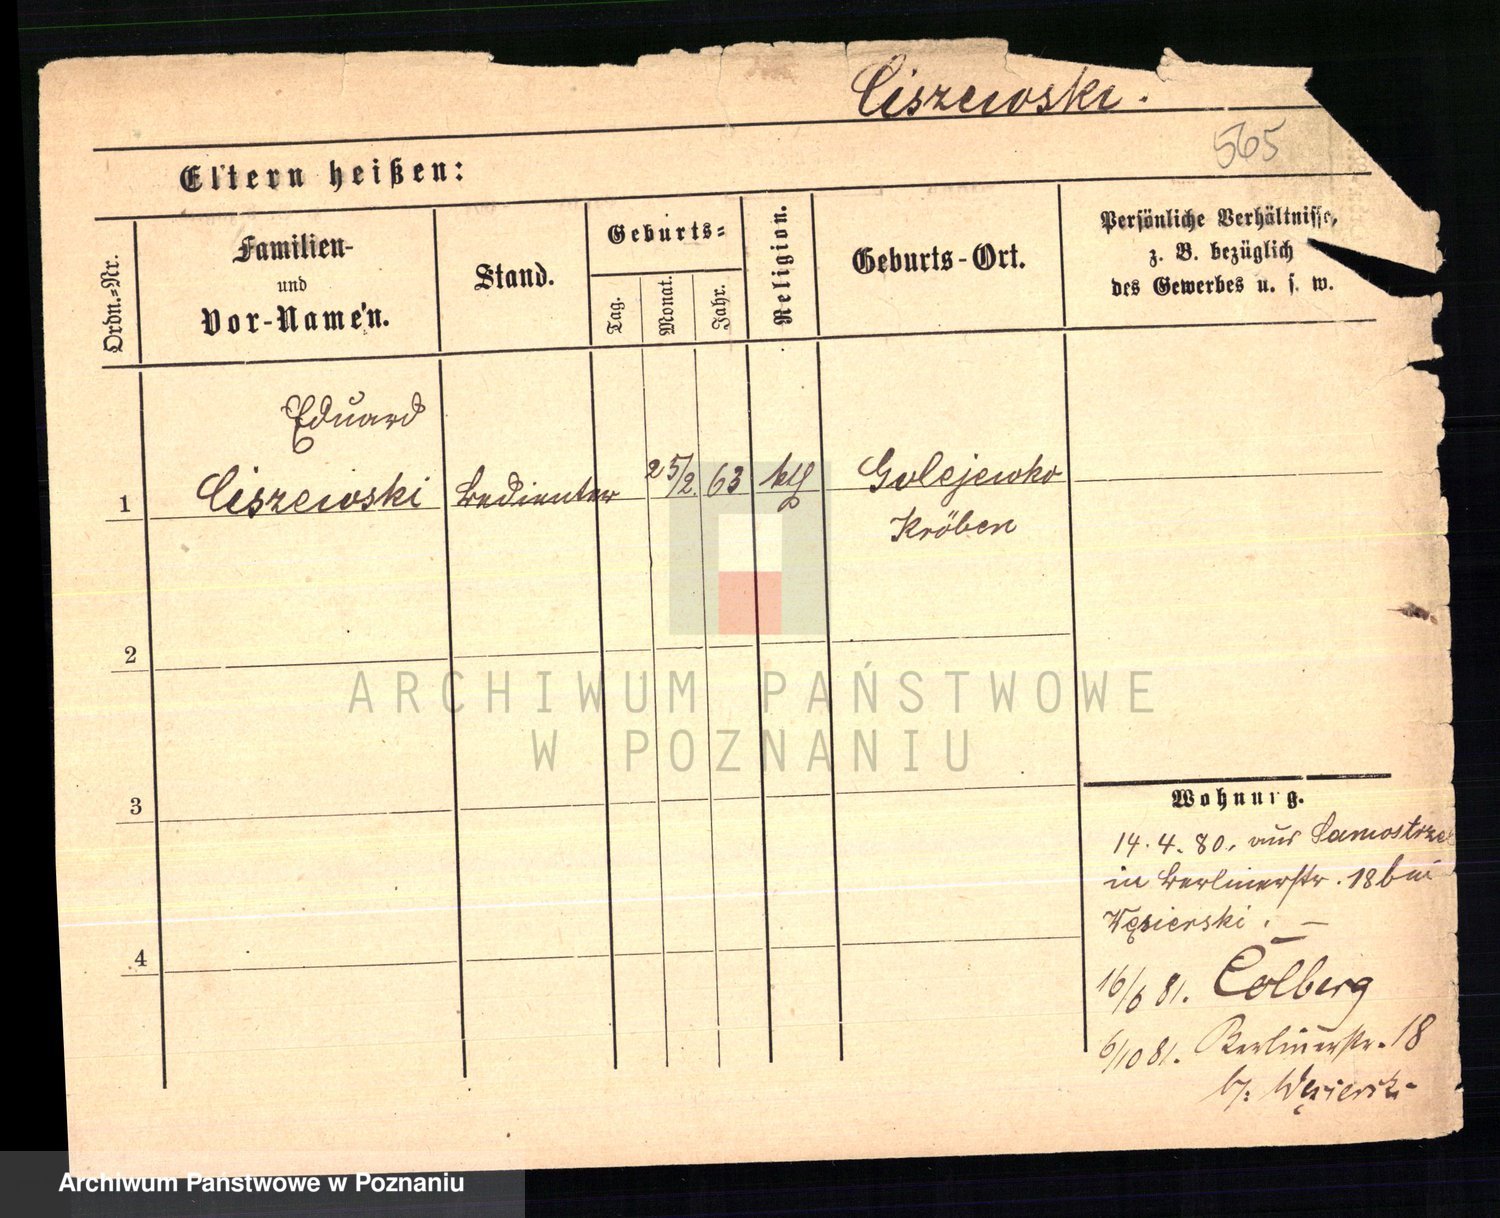 Ciszewski.
565
Eltern heißen:
Ordn.-Nr.
Familien-
und
Vor-Namen.
Stand.
Geburts-
Tag.
Monat.
Jahr.
Religion.
Geburts-Ort.
Persönliche Verhältnisse,
z. B. bezüglich
des Gewerbes u. s. w.
Eduard
1 Ciszewski Bedienter 25/2. 63 kth Golejewko
Kröben
2
3
4
Wohnung.
14. 4. 80. aus Samostrzel
in Berlinerstr. 18 bei
Węsierski. —
16/6 81. Colberg
6/10 81. Berlinerstr. 18
b/: Węsierski
ARCHIWUM PAŃSTWOWE
W POZNANIU
Archiwum Państwowe w Poznaniu